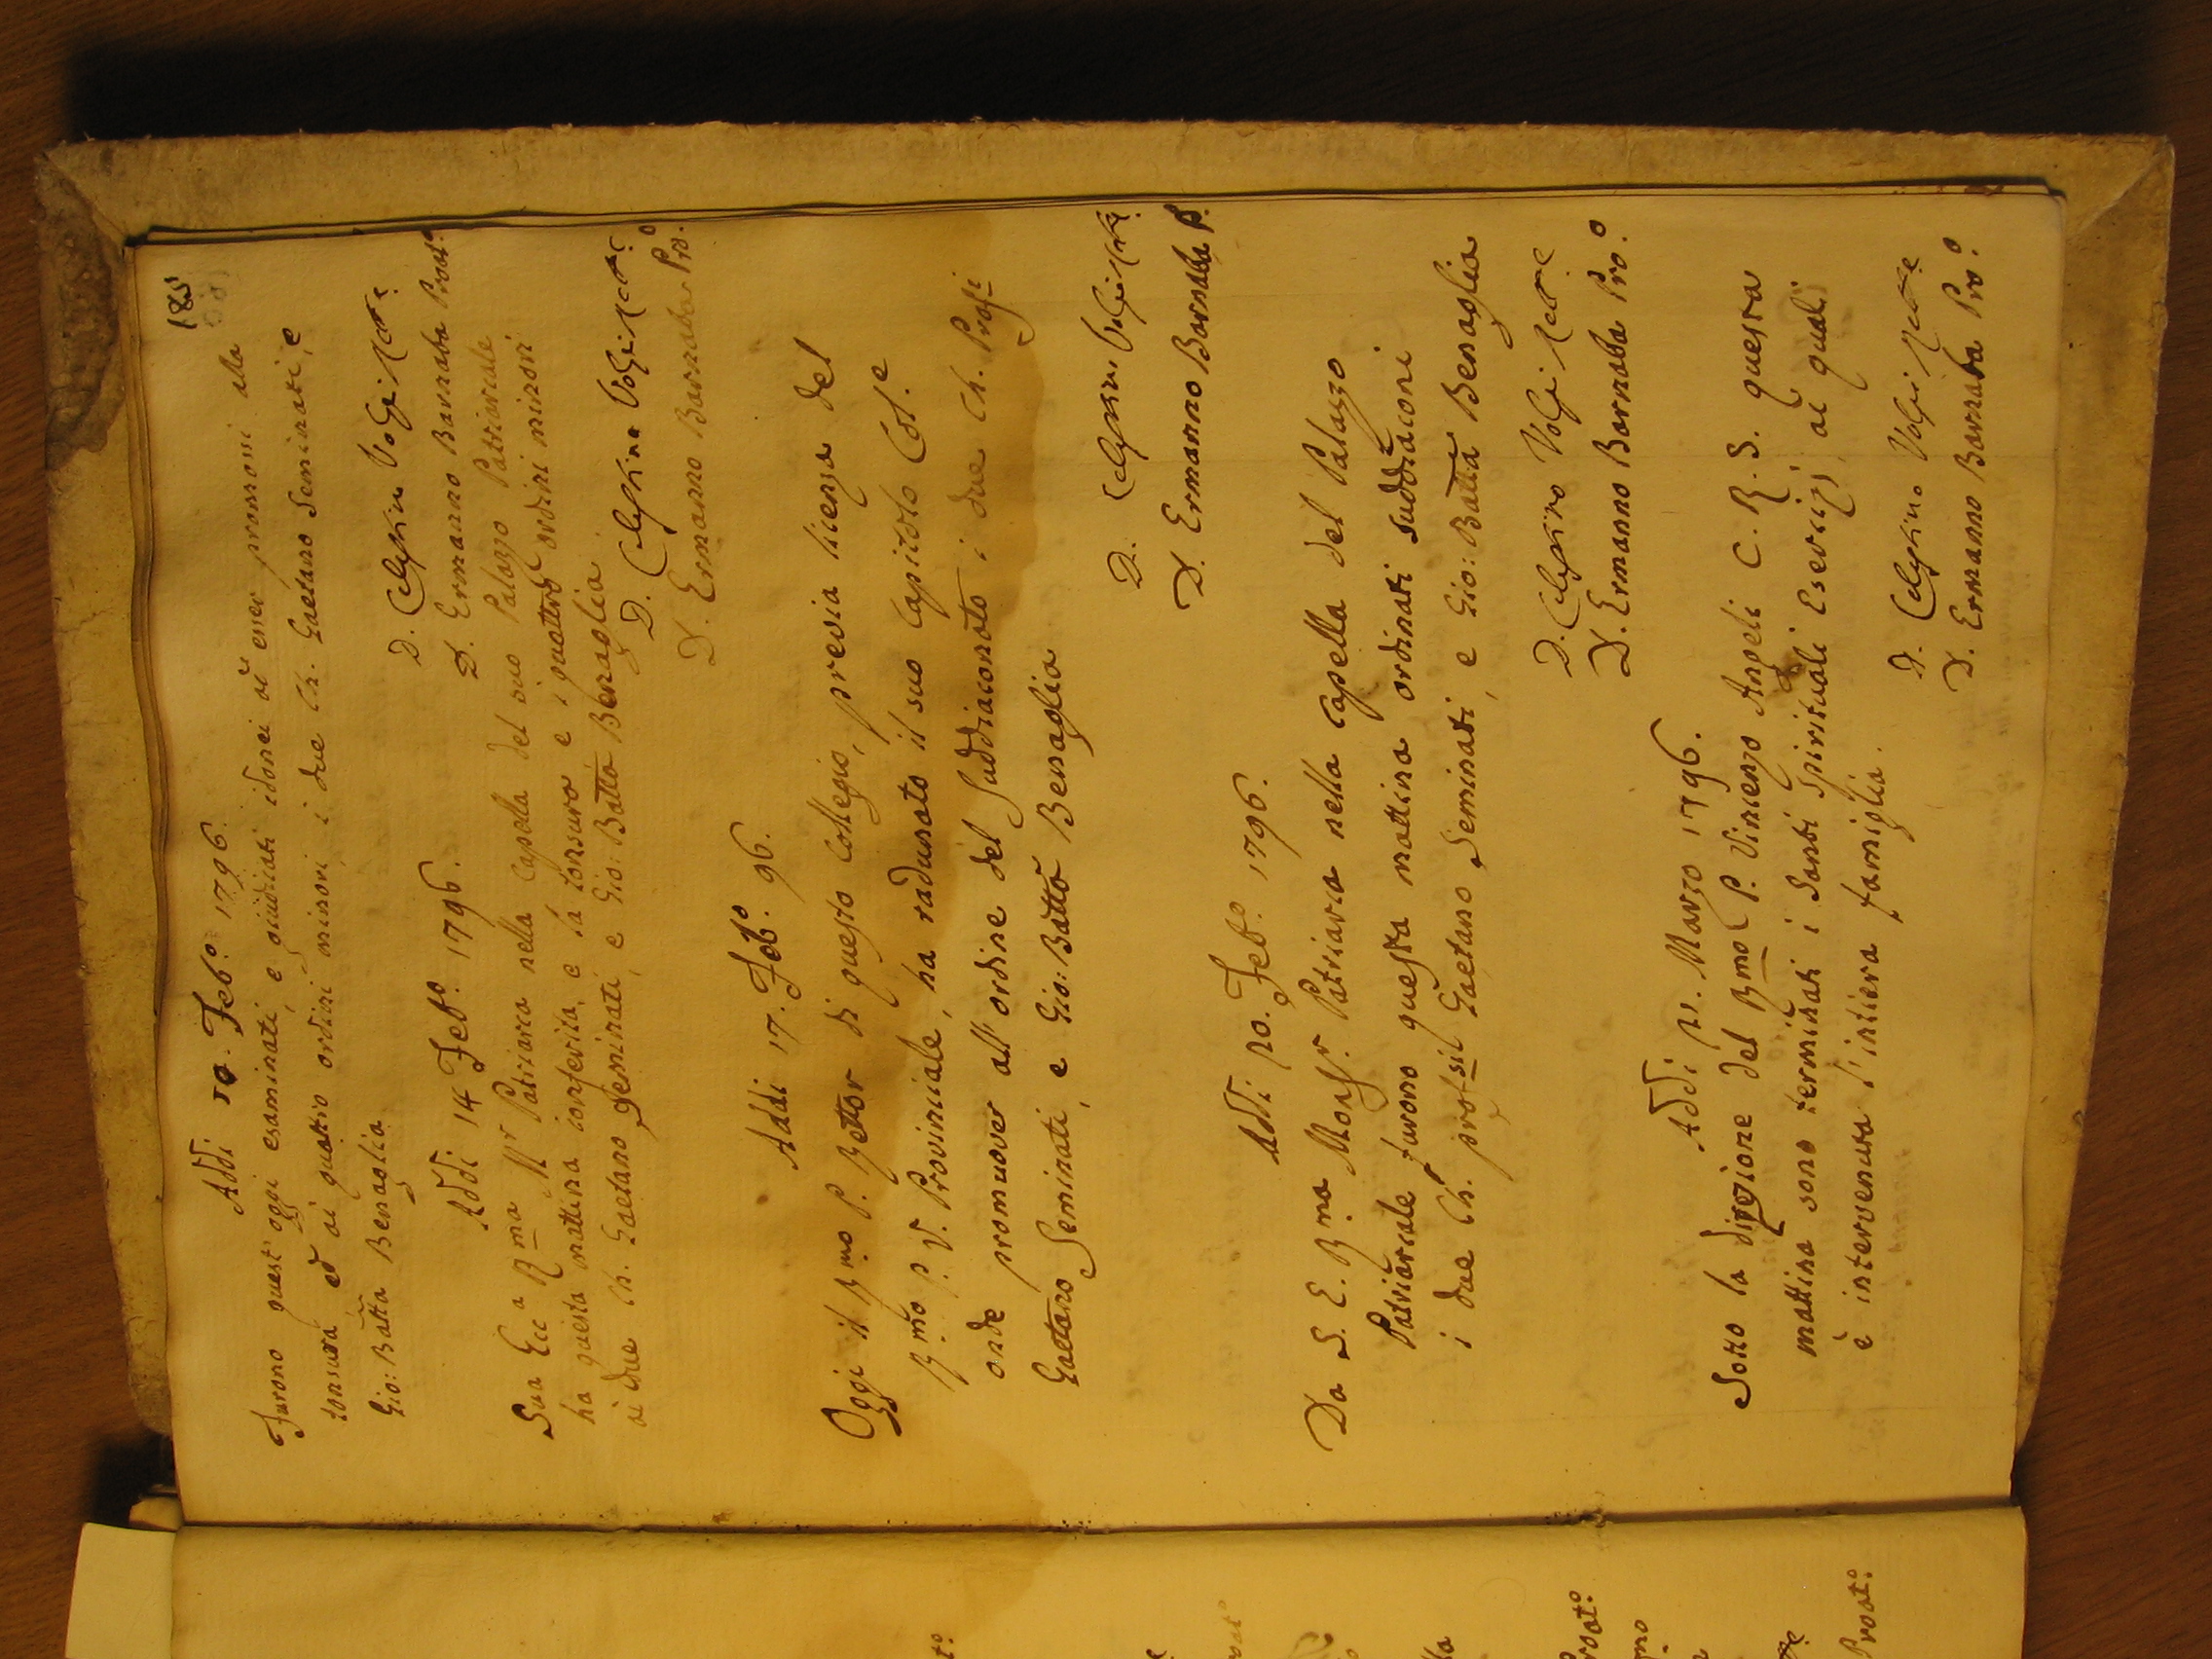 185
Addi 10. Feb.º 1796.
Furono quest'oggi esaminati, e giudicati idonei ad esser promossi alla
tonsura ed ai quattro ordini minori i due Ch. Gaetano Seminati, e
Gio: Batta Benaglia
D. Celestino Volpi Rett.e
D. Ermanno Barnaba Proat.º
Addi 14 Feb.º 1796.
Sua Ecc.a R.ma M.r Patriarca nella Capella del suo Palazzo Patriarcale
ha questa mattina conferita e la tonsura e i quattro ordini minori
ai due Ch. Gaetano Seminati, e Gio: Batta Benaglia.
D. Celestino Volpi Rett.e
D. Ermanno Barnaba Pro.º
Addi 17. Feb.º 96.
Oggi il R.mo P. Rettor di questo Collegio, previa licenza del
R.mo P. V. Provinciale, ha radunato il suo Capitolo Col.e
onde promuover all'ordine del Suddiaconato i due Ch. Prof.i
Gaetano Seminati, e Gio: Batta Benaglia
D. Celestino Volpi Rett.e
D. Ermanno Barnaba P.
Addi 20. Feb.º 1796.
Da S. E. R.ma Monsg.r Patriarca nella Capella del Palazzo
Patriarcale furono questa mattina ordinati suddiaconi
i due Ch. prof.si Gaetano Seminati, e Gio: Batta Benaglia
D. Celestino Volpi Rett.e
D. Ermanno Barnaba Pro.º
Addi 21. Marzo 1796.
Sotto la direzione del R.mo P. Vincenzo Angeli C. R. S. questa
mattina sono terminati i Santi Spirituali Esercizj, ai quali
è intervenuta l'intiera famiglia.
D. Celestino Volpi Rett.e
D. Ermanno Barnaba Pro.º